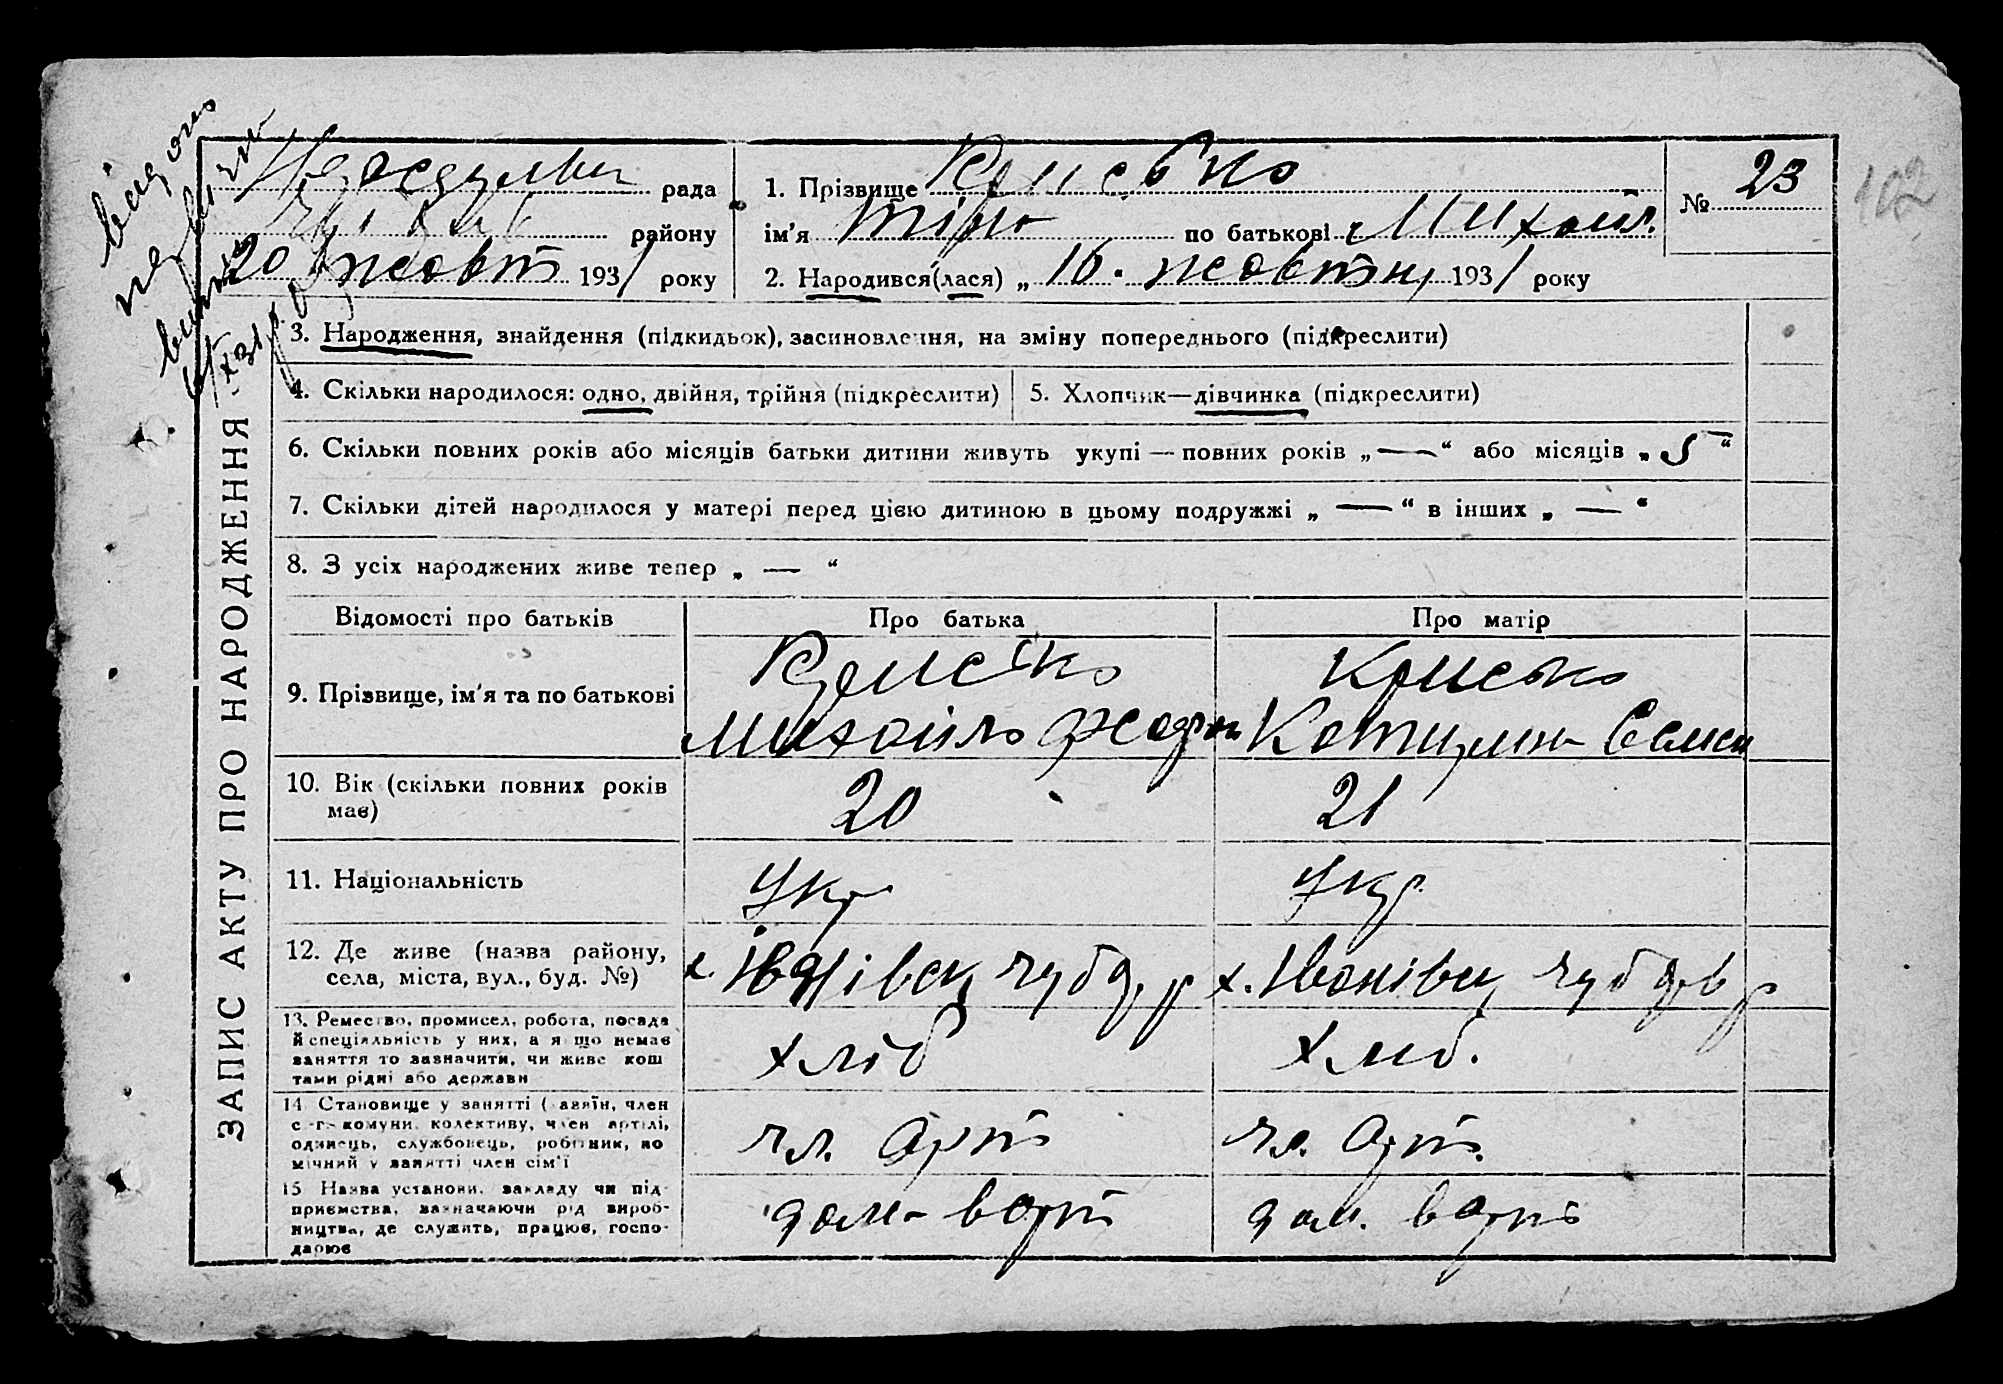 рада
району
20 жовт 1931 року
1. Прізвище Крисько
ім'я по батькові Михайл.
2. Народився(лася) „ 16. жовтня 1931 року
№ 23
102
3. Народження, знайдення (підкидьок), засиновлення, на зміну попереднього (підкреслити)
4. Скільки народилося: одно, двійня, трійня (підкреслити)
5. Хлопчик—дівчинка (підкреслити)
6. Скільки повних років або місяців батьки дитини живуть укупі — повних років „ — “ або місяців „ 5 “
7. Скільки дітей народилося у матері перед цією дитиною в цьому подружжі „ — “ в інших „ — “
8. З усіх народжених живе тепер „ — “
ЗАПИС АКТУ ПРО НАРОДЖЕННЯ
Відомості про батьків
Про батька
Про матір
9. Прізвище, ім'я та по батькові
Крисько
Михайло
Крисько
Катерина Семен
10. Вік (скільки повних років
має)
20
21
11. Національність
Укр
Укр.
12. Де живе (назва району,
села, міста, вул., буд. №)
х. Іванівськ чубар р
х. Іванівск чубарів р
13. Ремество, промисел, робота, посада
й спеціяльність у них, а я що немає
заняття то зазначити, чи живе кош
тами рідні або держави
хліб
хліб.
14 Становище у занятті ( азяїн, член
с -г.- комуни, колективу, член артілі,
одинець, службовець, робітник, по
мічний у занятті член сім'ї
чл. арт
чл. арт.
15 Назва установи, закладу чи під-
приємства, зазначаючи рід вироб-
ництва, де служить, працює, госпо-
дарює